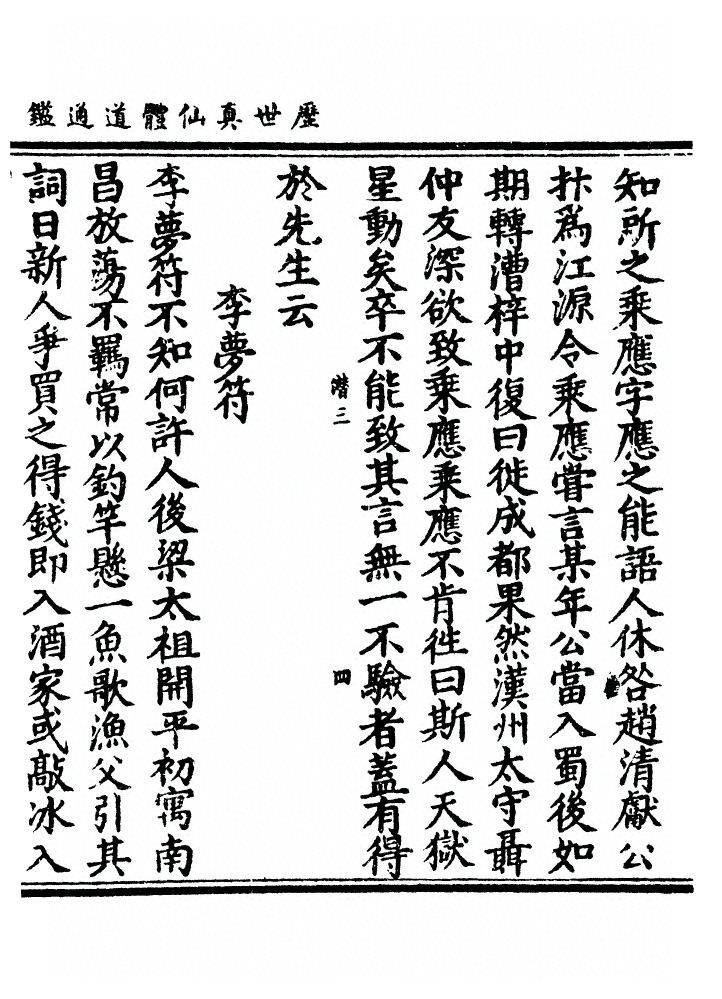 歷世真仙體道通鑑
知所之乘應字應之能語人休咎趙清獻公
抃爲江源令乘應嘗言某年公當入蜀後如
期轉漕梓中復曰徙成都果然漢州太守聶
仲友深欲致乘應乘應不肯徃曰斯人天獄
星動矣卒不能致其言無一不驗者蓋有得
潛三
四
於先生云
李夢符
李夢符不知何許人後梁太祖開平初寓南
昌放蕩不羈常以釣竿懸一魚歌漁父引其
詞日新人爭買之得錢即入酒家或敲冰入